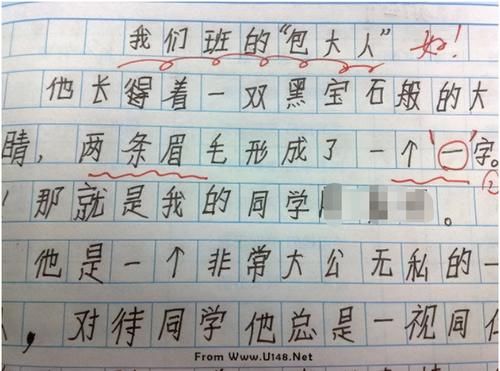 我们班的“包大人” 好！
他长得着一双黑宝石般的大
睛，两条眉毛形成了一个‘一’字。
那就是我的同学 。
他是一个非常大公无私的一
，对待同学他总是一视同仁
From Www.U148.Net